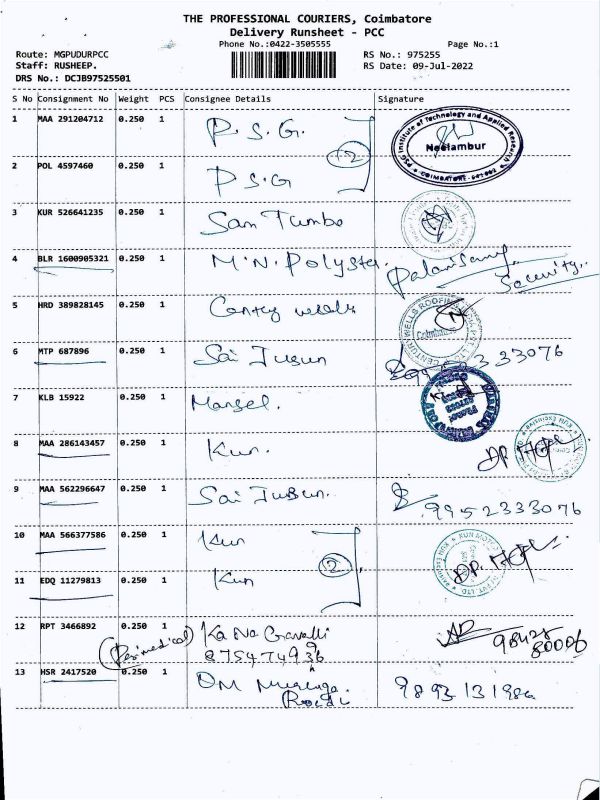 THE PROFESSIONAL COURIERS, Coimbatore
Delivery Runsheet - PCC
Phone No.:0422-3505555
Page No.:1
Route: MGPUDURPCC
RS No.: 975255
Staff: RUSHEEP.
RS Date: 09-Jul-2022
DRS No.: DCJB97525501
S No Consignment No Weight PCS Consignee Details Signature
1 MAA 291204712 0.250 1 P.S.G.
PSG Institute of Technology and Applied Research
Neelambur
COIMBATORE - 641 062
2
2 POL 4597460 0.250 1 P S G
3 KUR 526641235 0.250 1 Sam Turbo
4 BLR 1600905321 0.250 1 M.N. Polyster. Palanisamy
Security.
5 HRD 389828145 0.250 1 Century wells
Coimbatore
6 MTP 687896 0.250 1 Sai Jusun 9952333076
7 KLB 15922 0.250 1 Marsel.
8 MAA 286143457 0.250 1 Kun.
9 MAA 562296647 0.250 1 Sai Jusun. 9952333076
10 MAA 566377586 0.250 1 Kun
2
11 EDQ 11279813 0.250 1 Kun
12 RPT 3466892 0.250 1 Ka Na Gravalli
8754749 36
98428
80006
13 HSR 2417520 0.250 1 OM Muruga
9893131986